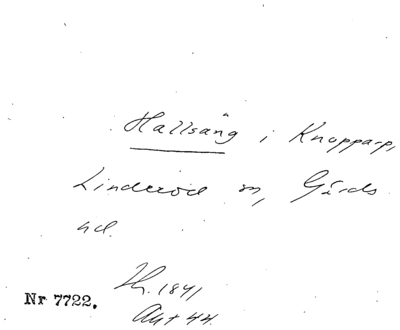 Hallsäng i Knopparp,
Linderöd sn, Gärds
hd.
Nr 7722.
1841
Akt 44.